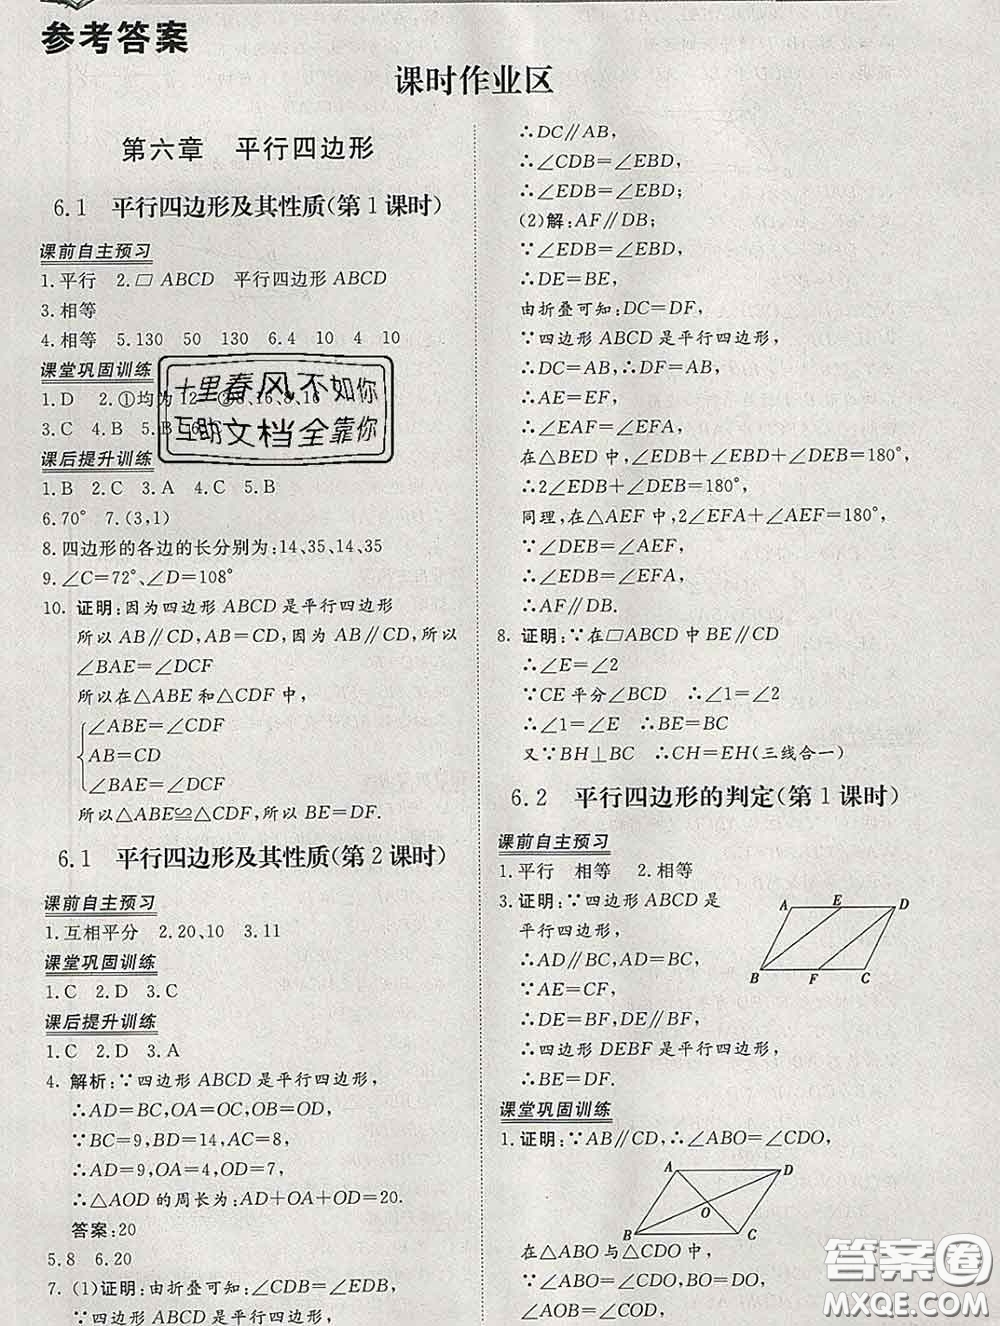 参考答案
课时作业区
第六章 平行四边形
6.1 平行四边形及其性质(第1课时)
课前自主预习
1.平行 2.□ ABCD 平行四边形 ABCD
3.相等
4.相等 5.130 50 130 6.4 10 4 10
课堂巩固训练
1.D 2.①均为12 16、8、16
3.C 4.B 5.B 6.C
课后提升训练
1.B 2.C 3.A 4.C 5.B
6.70° 7.(3,1)
8.四边形的各边的长分别为:14,35,14,35
9.∠C=72°、∠D=108°
10.证明:因为四边形 ABCD 是平行四边形
所以 AB∥CD,AB=CD,因为 AB∥CF,所以
∠BAE=∠DCF
所以在△ABE 和△CDF 中,
∠ABE=∠CDF
AB=CD
∠BAE=∠DCF
所以△ABE≌△CDF,所以 BE=DF.
6.1 平行四边形及其性质(第2课时)
课前自主预习
1.互相平分 2.20、10 3.11
课堂巩固训练
1.C 2.D 3.C
课后提升训练
1.C 2.D 3.A
4.解析:∵四边形 ABCD 是平行四边形,
∴AD=BC,OA=OC,OB=OD,
∵BC=9,BD=14,AC=8,
∴AD=9,OA=4,OD=7,
∴△AOD 的周长为:AD+OA+OD=20.
答案:20
5.8 6.20
7.(1)证明:由折叠可知:∠CDB=∠EDB,
∵四边形 ABCD 是平行四边形,
∴DC∥AB,
∴∠CDB=∠EBD,
∴∠EDB=∠EBD;
(2)解:AF∥DB;
∵∠EDB=∠EBD,
∴DE=BE,
由折叠可知:DC=DF,
∵四边形 ABCD 是平行四边形,
∴DC=AB,∴DF=AB,
∴AE=EF,
∴∠EAF=∠EFA,
在△BED 中,∠EDB+∠EBD+∠DEB=180°,
∴2∠EDB+∠DEB=180°,
同理,在△AEF 中,2∠EFA+∠AEF=180°,
∵∠DEB=∠AEF,
∴∠EDB=∠EFA,
∴AF∥DB.
8.证明:∵在□ABCD 中 BE∥CD
∴∠E=∠2
∵CE 平分∠BCD ∴∠1=∠2
∴∠1=∠E ∴BE=BC
又∵BH⊥BC ∴CH=EH(三线合一)
6.2 平行四边形的判定(第1课时)
课前自主预习
1.平行 相等 2.相等
3.证明:∵四边形 ABCD 是
平行四边形,
∴AD∥BC,AD=BC,
∵AE=CF,
∴DE=BF,DE∥BF,
∴四边形 DEBF 是平行四边形,
∴BE=DF.
A E D
B F C
课堂巩固训练
1.证明:∵AB∥CD,∴∠ABO=∠CDO,
A D
O
B C
在△ABO 与△CDO 中,
∵∠ABO=∠CDO,
∠AOB=∠COD,
十里春风不如你
互助文档全靠你
答案圈
MXQE.COM